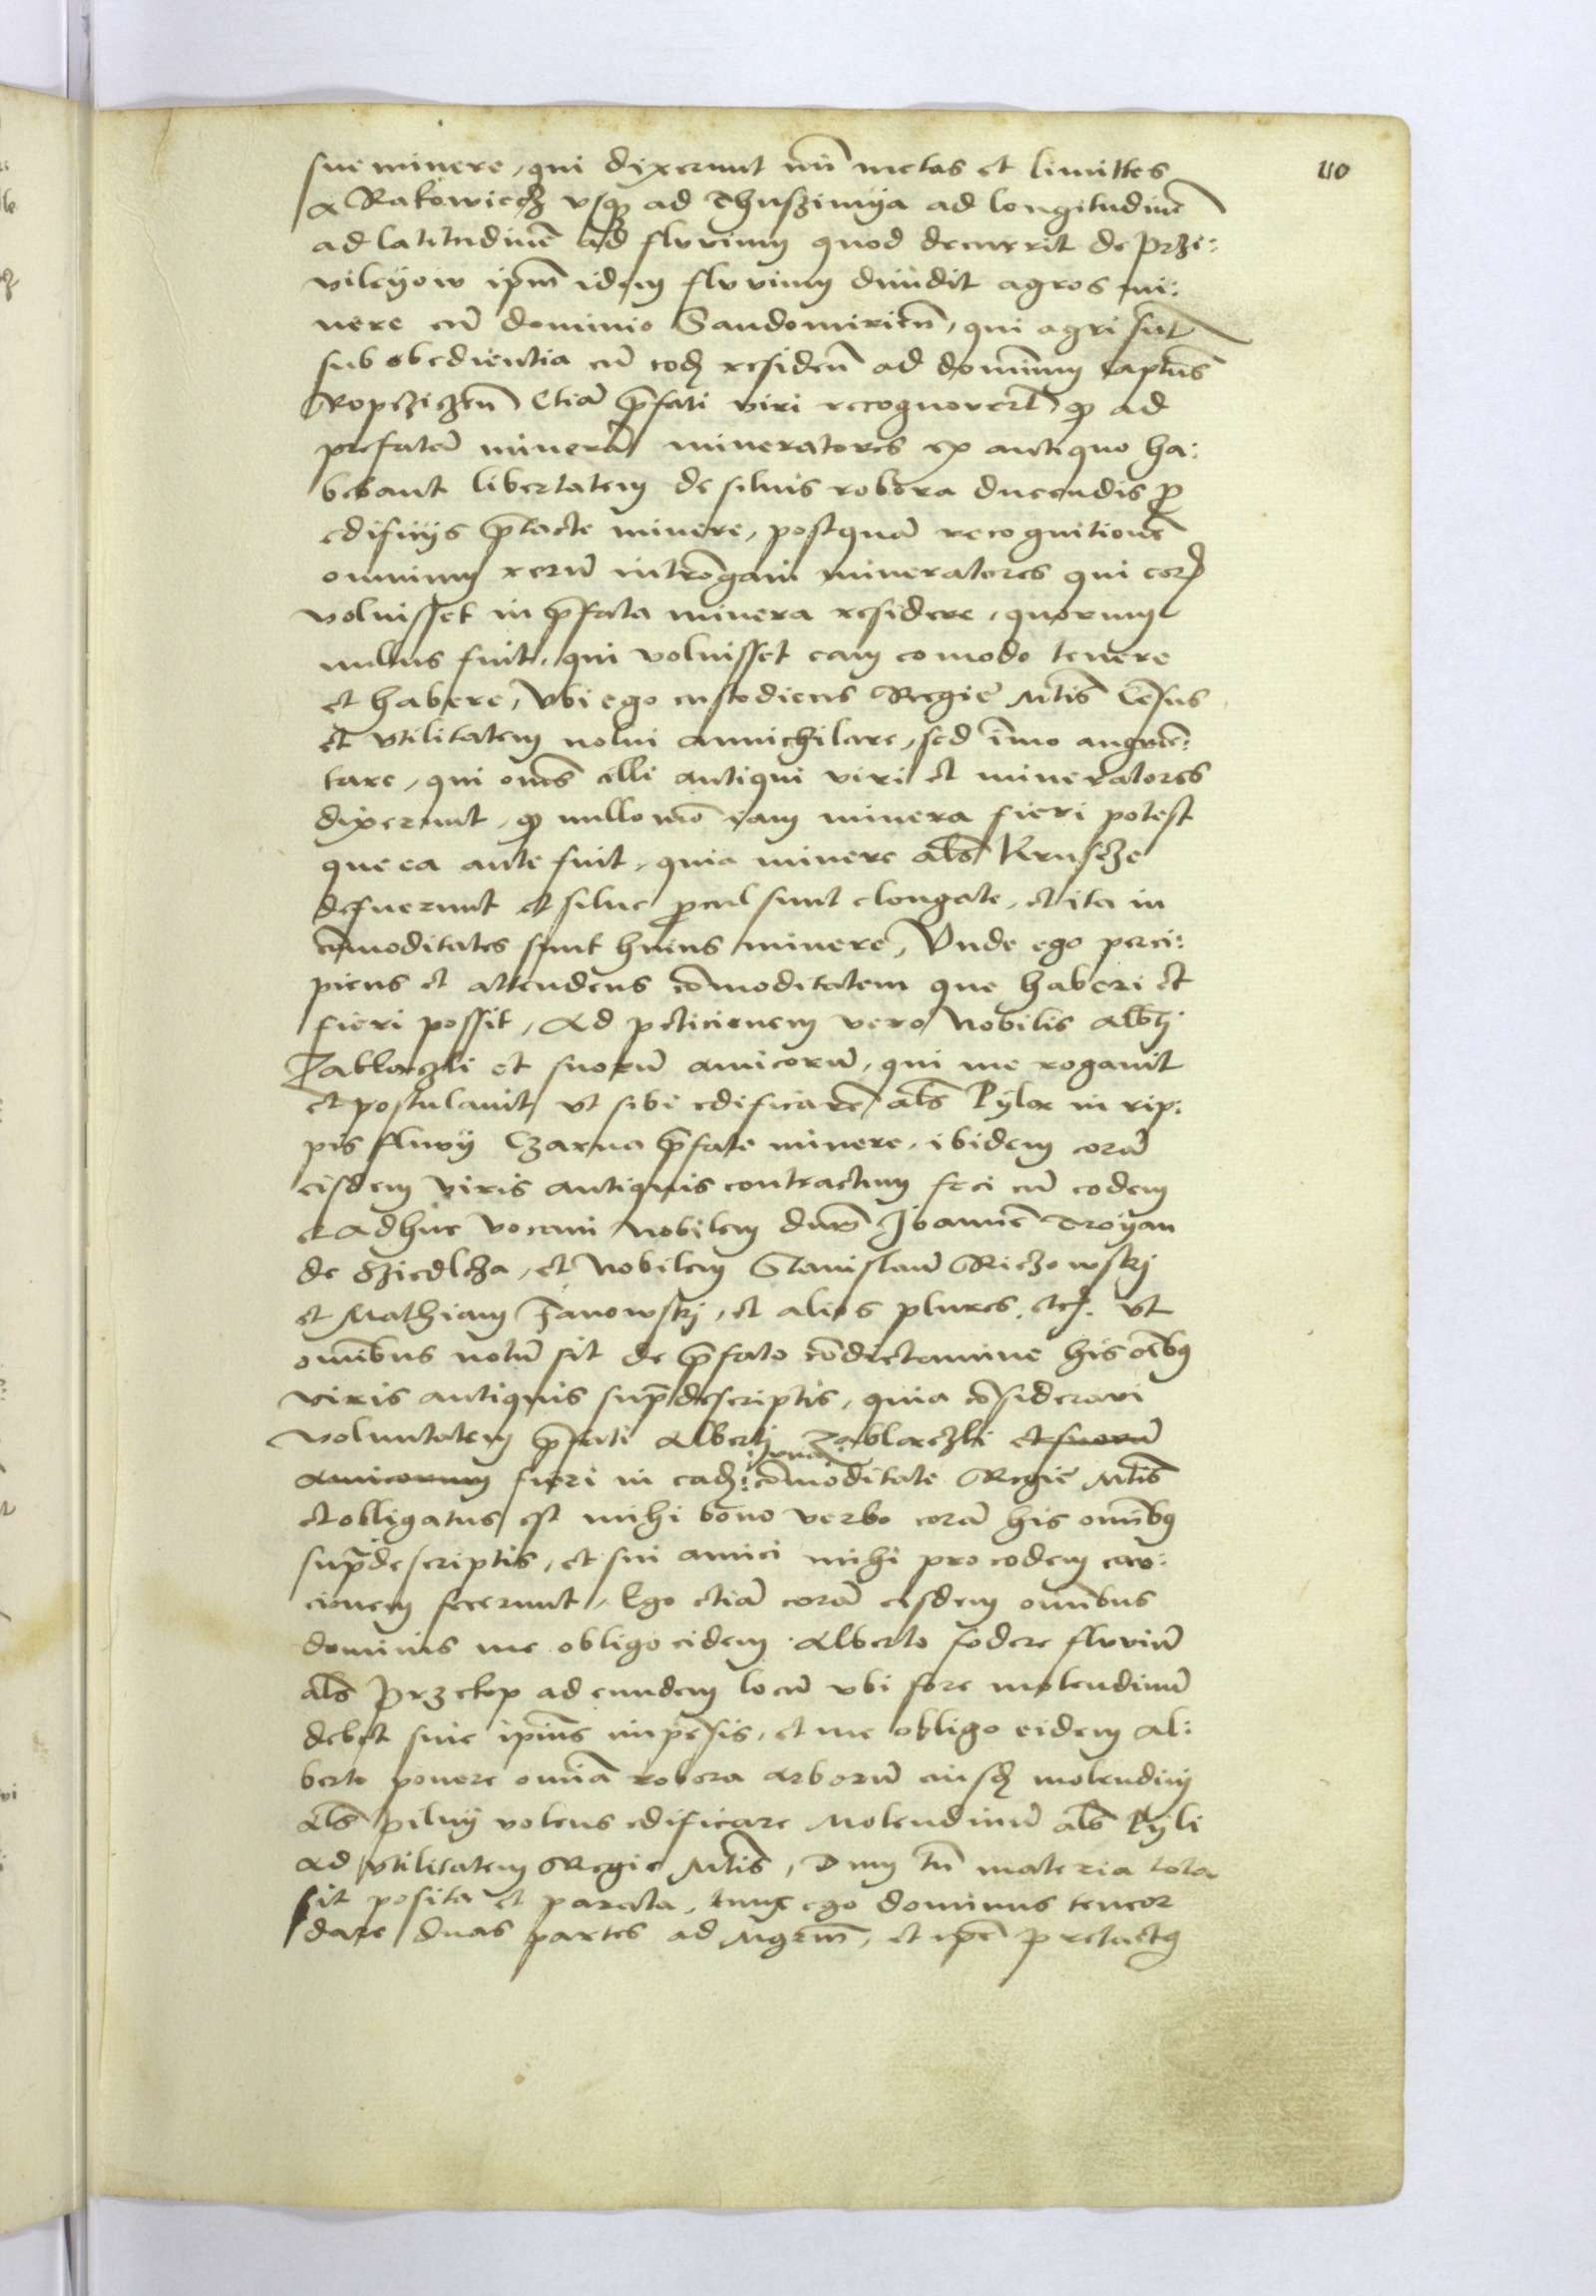 110
sue minere, qui dixerunt nr̃i metas et limittes
a Rakowiecz vsq3 ad Thuszimÿa ad longitudinẽ
ad latitudinẽ ad fluvium quod decurrit de Przi:
vilcÿow ipm̃ idem fluvium diuidit agros mi:
nere cũ dominio Sandomirieñ, qui agri sũt
sub obedientia cũ eod3 resideñ ad dominum capt̃ns
Ropczicẽn Etiã p̃fati viri recognoverũt q3 ad
prefatã minerã mineratores ex antiquo ha:
bebant libertatem de siluis robora ducendis ꝓ
edificijs p̃tacte minere, postquã recognitionẽ
omnium rerũ intrõgaui mineratores qui eor3
voluisset in p̃fata minera residere, quorum
nullus fuit, qui voluisset eam comodo tenere
et habere, Vbi ego custodiens Regie Mtĩs Cẽsus
et vtilitatem nolui annichilare, sed ĩmo augmẽ:
tare, qui om̃s illi antiqui viri et mineratores
dixerunt, q3 nullo mõ iam minera fieri potest
que ea ante fuit, quia minere al̃s Kruscze
defuerunt et silue ꝓcul sunt elongate, et ita in
cõmoditates sunt huius minere, Vnde ego perci:
piens et attendens cõmoditatem que haberi et
fieri possit, Ad peticionem vero Nobilis Alb̃tj
Zablaczki et suorũ amicorũ, qui me rogauit
et postulauit, vt sibi edificarẽ al̃s Pÿla in rip:
pis fluvÿ Czarna p̃fate minere, ibidem corã
eisdem viris antiquis contractum feci cũ eodem
et adhuc vocaui Nobilem dnm̃ Joannẽ Troÿan
de Sziedlcza, et Nobilem Stanislaũ Riczowskj
et Mathiam Janowskj, et alios plures. etc. vt
omĩbus notũ sit de p̃fato cõdictamine his oĩb9
viris antiquis sup̃descriptis, quia cõsideravi
voluntatem p̃fati Albertj Zablaczki et suorũ
amicorum fieri in ead3: cõmoditate Regie Mtĩs
et obligatus est mihi bono verbo corã his omĩb9
sup̃descriptis, et sui amici mihi pro eodem cau:
cionem fecerunt, Ego etiã corã eisdem omĩbus
dominis me obligo eidem Alberto fodere fluviũ
al̃s Przekop ad eundem locũ vbi fore molendinũ
debet sine ipius impẽsis, et me obligo eidem Al:
berto ponere omĩa robora arborũ eiusd3 molendinj
al̃s pilnÿ volens edificare Molendinũ al̃s Pÿli
ad vtilitatem Regie Mtĩs, Dum tñ materia tota
sit posita et parata, tunc ego dominus teneor
dare duas partes ad Mgrm̃, et ipẽ pretact9